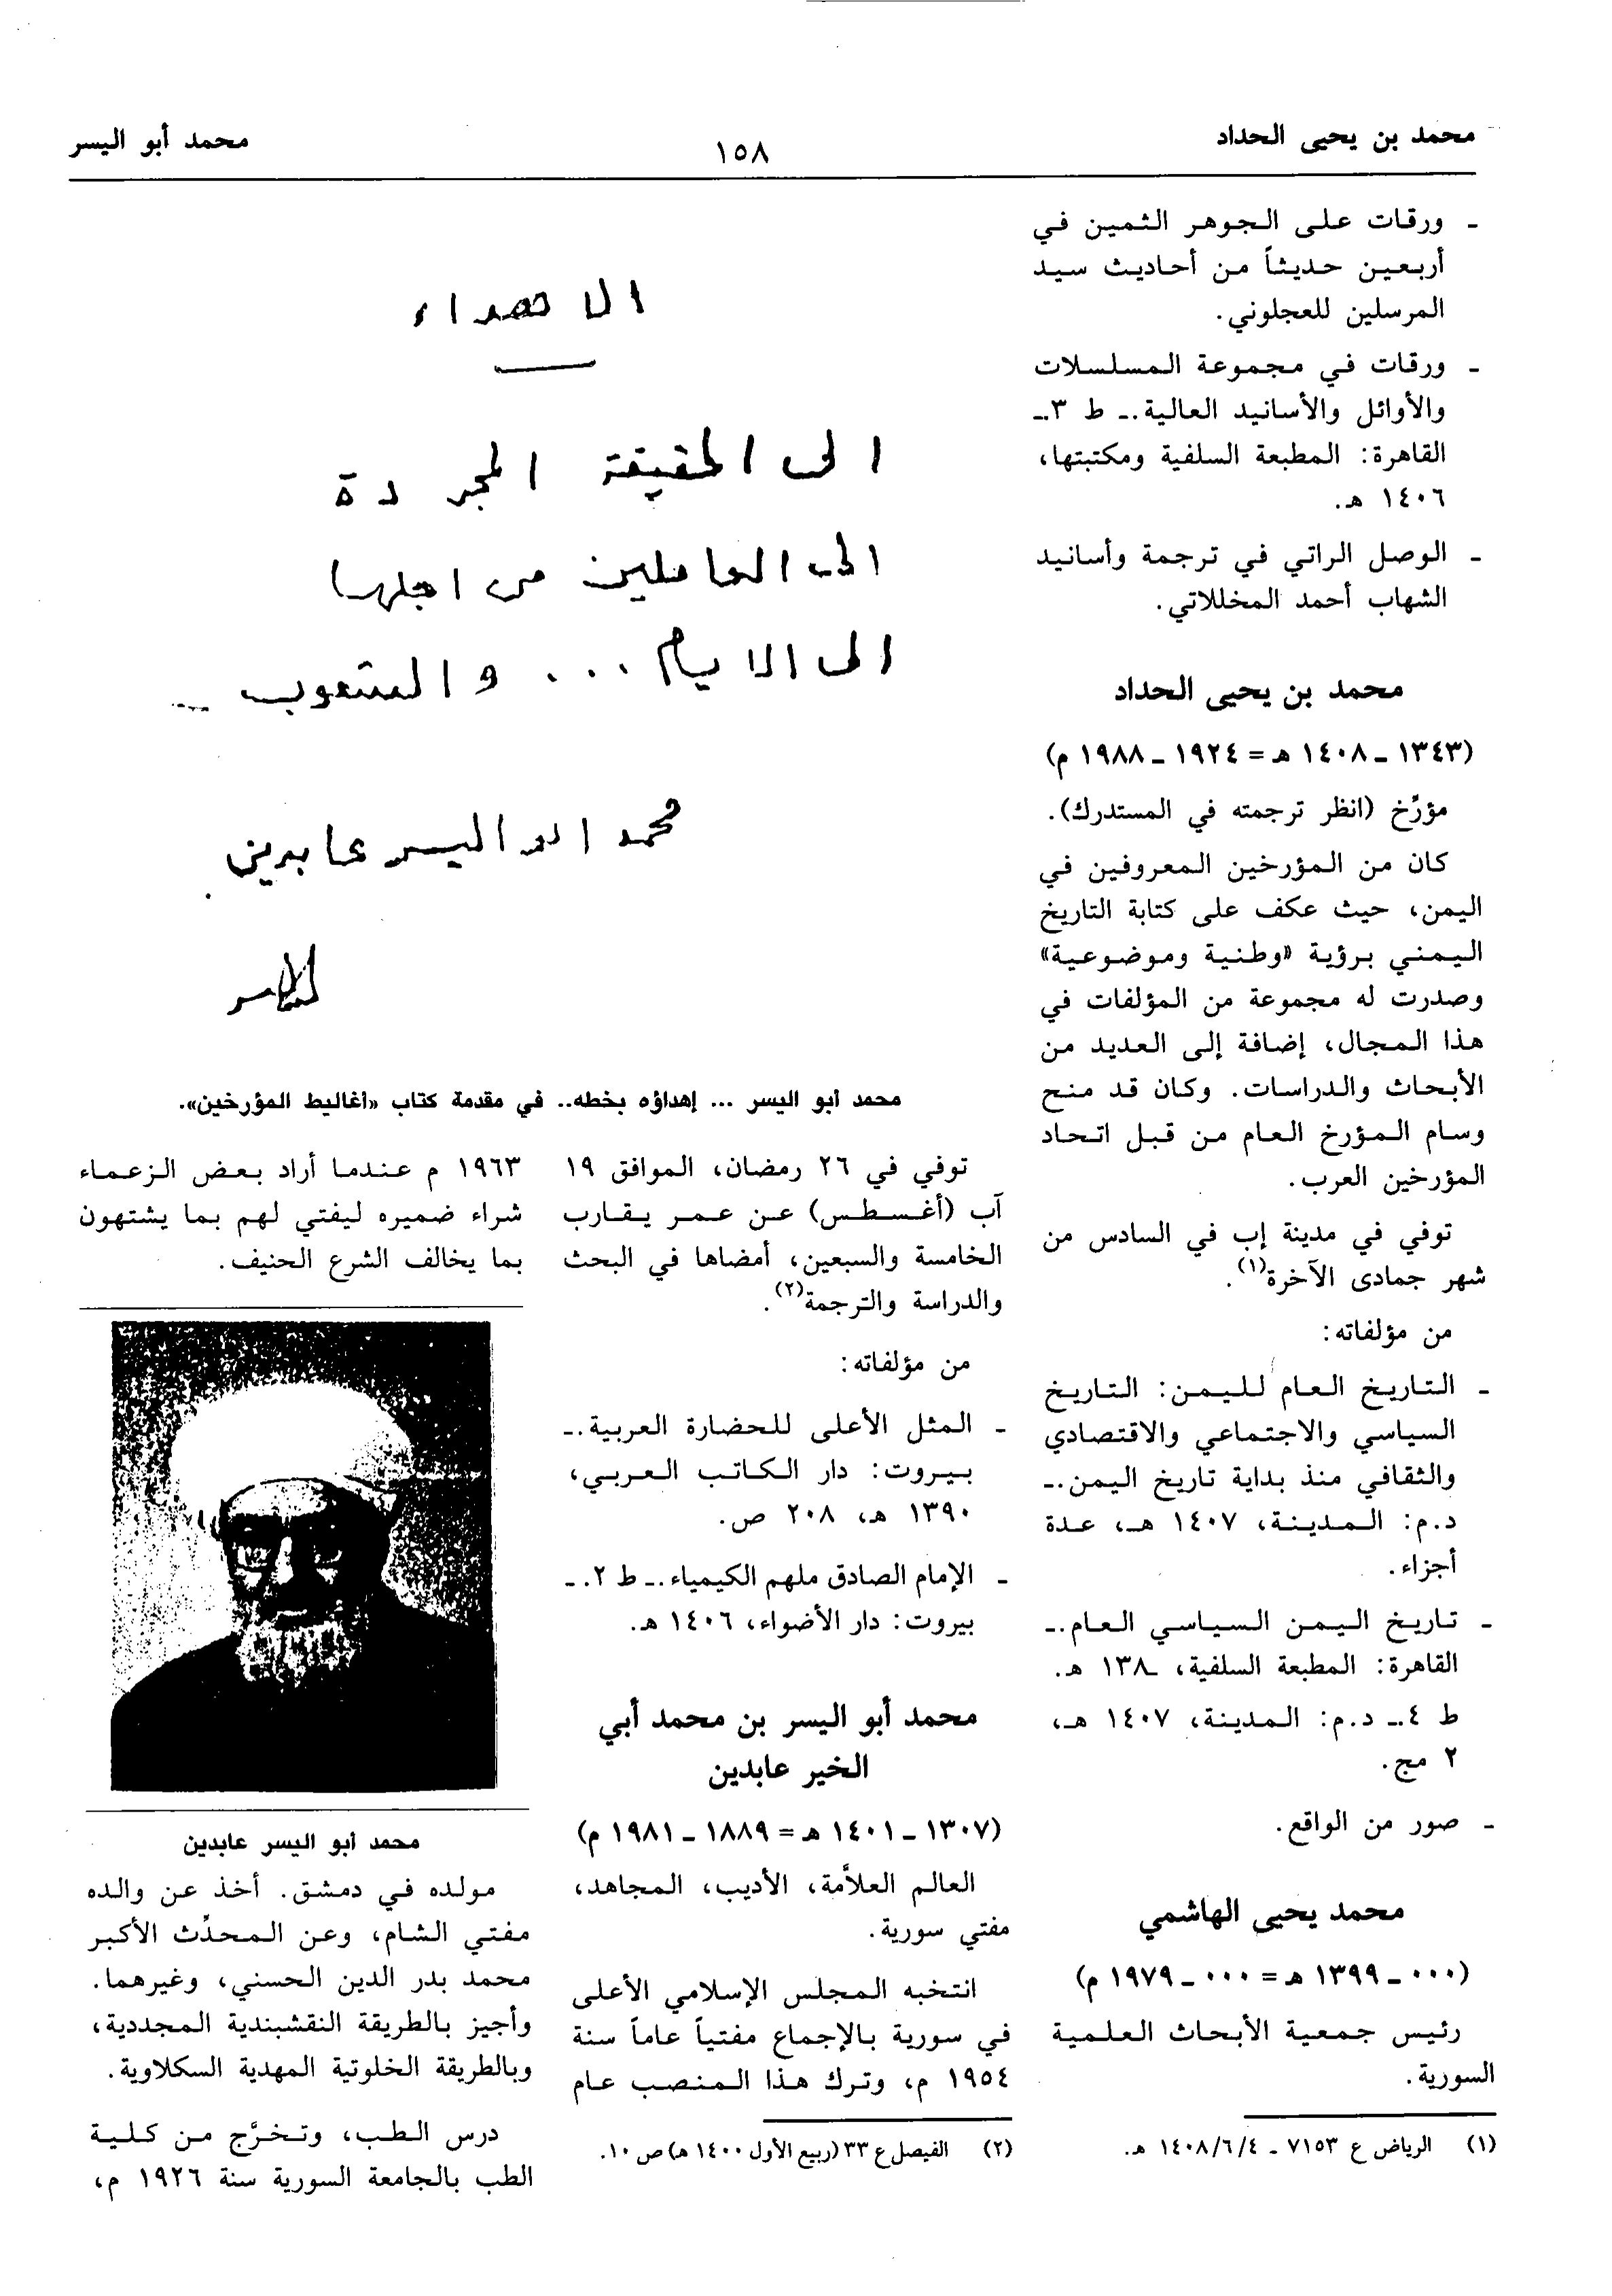 محمد بن يحيى الحداد
١٥٨
محمد أبو اليسر
ـ ورقات على الجوهر الثمين في
أربعين حديثاً من أحاديث سيد
المرسلين للعجلوني.
ـ ورقات في مجموعة المسلسلات
والأوائل والأسانيد العالية .ـ ط ٣ .ـ
القاهرة: المطبعة السلفية ومكتبتها،
١٤٠٦ هـ.
ـ الوصل الراتي في ترجمة وأسانيد
الشهاب أحمد المخللاتي.
محمد بن يحيى الحداد
(١٣٤٣ ـ ١٤٠٨ هـ = ١٩٢٤ ـ ١٩٨٨ م)
مؤرِّخ (انظر ترجمته في المستدرك).
كان من المؤرخين المعروفين في
اليمن، حيث عكف على كتابة التاريخ
اليمني برؤية «وطنية وموضوعية»
وصدرت له مجموعة من المؤلفات في
هذا المجال، إضافة إلى العديد من
الأبحاث والدراسات. وكان قد منح
وسام المؤرخ العام من قبل اتحاد
المؤرخين العرب.
توفي في مدينة إب في السادس من
شهر جمادى الآخرة(١).
من مؤلفاته:
ـ التاريخ العام لليمن: التاريخ
السياسي والاجتماعي والاقتصادي
والثقافي منذ بداية تاريخ اليمن .ـ
د.م: المدينة، ١٤٠٧ هـ، عدة
أجزاء.
ـ تاريخ اليمن السياسي العام .ـ
القاهرة: المطبعة السلفية، ـ١٣٨ هـ.
ط ٤ .ـ د.م: المدينة، ١٤٠٧ هـ،
٢ مج.
ـ صور من الواقع.
محمد يحيى الهاشمي
(٠٠٠ ـ ١٣٩٩ هـ = ٠٠٠ ـ ١٩٧٩ م)
رئيس جمعية الأبحاث العلمية
السورية.
(١) الرياض ع ٧١٥٣ ـ ١٤٠٨/٦/٤ هـ.
الاهداء
الى الحقيقة المجردة
الى العاملين من اجلها
الى الايام ... و الشعوب
محمد ابو اليسر عابدين
محمد أبو اليسر ... إهداؤه بخطه.. في مقدمة كتاب «أغاليط المؤرخين».
توفي في ٢٦ رمضان، الموافق ١٩
آب (أغسطس) عن عمر يقارب
الخامسة والسبعين، أمضاها في البحث
والدراسة والترجمة(٢).
من مؤلفاته:
ـ المثل الأعلى للحضارة العربية .ـ
بيروت: دار الكاتب العربي،
١٣٩٠ هـ، ٢٠٨ ص.
ـ الإمام الصادق ملهم الكيمياء .ـ ط ٢. ـ
بيروت: دار الأضواء، ١٤٠٦ هـ.
محمد أبو اليسر بن محمد أبي
الخير عابدين
(١٣٠٧ ـ ١٤٠١ هـ = ١٨٨٩ ـ ١٩٨١ م)
العالم العلاَّمة، الأديب، المجاهد،
مفتي سورية.
انتخبه المجلس الإسلامي الأعلى
في سورية بالإجماع مفتياً عاماً سنة
١٩٥٤ م، وترك هذا المنصب عام
(٢) الفيصل ع ٣٣ (ربيع الأول ١٤٠٠ هـ) ص ١٠.
١٩٦٣ م عندما أراد بعض الزعماء
شراء ضميره ليفتي لهم بما يشتهون
بما يخالف الشرع الحنيف.
محمد أبو اليسر عابدين
مولده في دمشق. أخذ عن والده
مفتي الشام، وعن المحدِّث الأكبر
محمد بدر الدين الحسني، وغيرهما.
وأجيز بالطريقة النقشبندية المجددية،
وبالطريقة الخلوتية المهدية السكلاوية.
درس الطب، وتخرَّج من كلية
الطب بالجامعة السورية سنة ١٩٢٦ م،